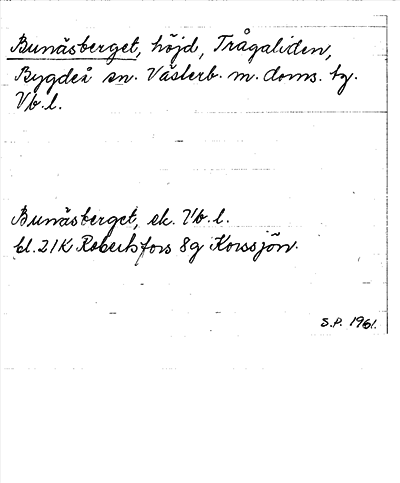 Bunäsberget, höjd, Trågaliden,
Bygdeå sn. Västerb. m. doms. tg.
Vb. l.
Bunäsberget, ek. Vb. l.
bl. 21K Robertsfors 8g Korssjön.
S.P. 1961.